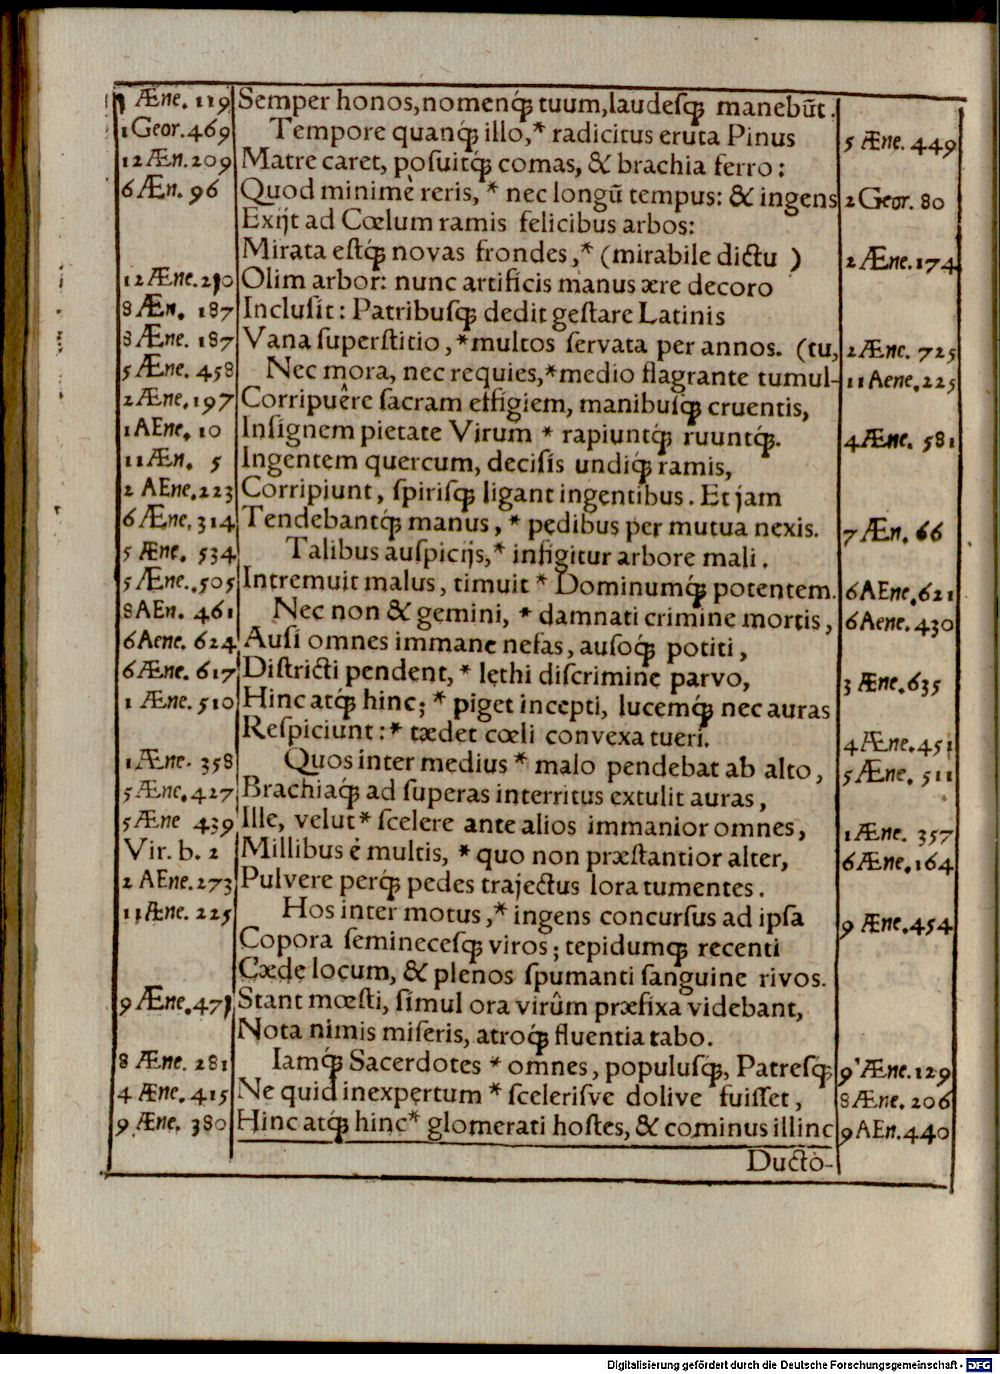 1 Æne. 119 Semper honos, nomenq́; tuum, laudesq́; manebūt.
1 Geor. 469 Tempore quanq́; illo, * radicitus eruta Pinus 5 Æne. 449
12 Æn. 209 Matre caret, posuitq́; comas, & brachia ferro:
6 Æn. 96 Quod minimè reris, * nec longū tempus: & ingens 2 Geor. 80
Exijt ad Cœlum ramis felicibus arbos:
Mirata estq́; novas frondes, * (mirabile dictu ) 2 Æne. 174
12 Æne. 210 Olim arbor: nunc artificis manus ære decoro
8 Æn. 187 Inclusit: Patribusq́; dedit gestare Latinis
8 Æne. 187 Vana superstitio, * multos servata per annos. (tu, 2 Æne. 725
5 Æne. 458 Nec mora, nec requies, * medio flagrante tumul- 11 Aene. 225
2 Æne. 197 Corripuêre sacram effigiem, manibusq́; cruentis,
1 AEne. 10 Insignem pietate Virum * rapiuntq́; ruuntq́;. 4 Æne. 581
11 Æn. 5 Ingentem quercum, decisis undiq́; ramis,
2 AEne. 223 Corripiunt, spirisq́; ligant ingentibus. Et jam
6 Æne. 314 Tendebantq́; manus, * pedibus per mutua nexis. 7 Æn. 66
5 Æne. 534 Talibus auspicijs, * infigitur arbore mali.
5 Æne. 505 Intremuit malus, timuit * Dominumq́; potentem. 6 AEne. 621
8 AEn. 461 Nec non & gemini, * damnati crimine mortis, 6 Aene. 430
6 Aene. 624 Ausi omnes immane nefas, ausoq́; potiti,
6 Æne. 617 Districti pendent, * lethi discrimine parvo, 3 Æne. 635
1 Æne. 510 Hinc atq́; hinc; * piget incepti, lucemq́; nec auras
Respiciunt: * tædet cœli convexa tueri. 4 Æne. 451
1 Æne. 358 Quos inter medius * malo pendebat ab alto, 5 Æne. 511
5 Æne. 427 Brachiaq́; ad superas interritus extulit auras,
5 Æne 439 Ille, velut * scelere ante alios immanior omnes, 1 Æne. 357
Vir. b. 2 Millibus é multis, * quo non præstantior alter, 6 Æne. 164
2 AEne. 273 Pulvere perq́; pedes trajectus lora tumentes.
11 Æne. 225 Hos inter motus, * ingens concursus ad ipsa 9 Æne. 454
Copora seminecesq́; viros; tepidumq́; recenti
Cæde locum, & plenos spumanti sanguine rivos.
9 Æne. 471 Stant mœsti, simul ora virûm præfixa videbant,
Nota nimis miseris, atroq́; fluentia tabo.
8 Æne. 281 Iamq́; Sacerdotes * omnes, populusq́;, Patresq́; 9 Æne. 129
4 Æne. 415 Ne quid inexpertum * scelerisve dolive fuisset, 8 Æne. 206
9 Æne. 380 Hinc atq́; hinc * glomerati hostes, & cominus illinc 9 AEn. 440
Ductò-
Digitalisierung gefördert durch die Deutsche Forschungsgemeinschaft - DFG